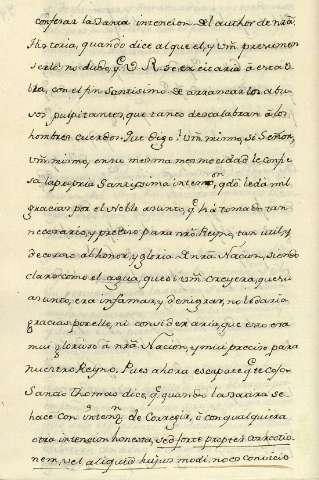 confesar la sana intencion del author de nrã.
Historia, quando dice al que el, y Vm̃. presumen
serlo: no dudo, q.e V. R. se excitaria à esta o
bra, con el fin santisimo de arrancar los abu
sos pulpitantes, que tanto descalabran à los
hombres cuerdos. Que digo? Vm̃. mismo, Si Señor,
Vm̃. mismo, en su mesma mesmedad le confie
sa la propria Santissima inten.on, q.do le da mil
gracias por el Noble asunto, q.e ha tomado tan
necesario, y preciso para nrõ Reyno, tan util, y
decoroso al honor, y gloria de nrã Nacion, siendo
claro como el agua, que si Vm̃. creyera, que su
asunto, era infamar, y denigrar, no le daria
gracias por ello, ni consideraria, que esto era
mui glorioso à nrã. Nacion, y mui preciso para
nuestro Reyno. Pues ahora escapece q.e te cojo:
Santo Thomas dice, q.e quando la satira se
hace con inten.n de Corregir, ò con qualquiera
otra intencion honesta, sed forte propter correctio-
nem, vel aliquid hujusmodi, no es convicio